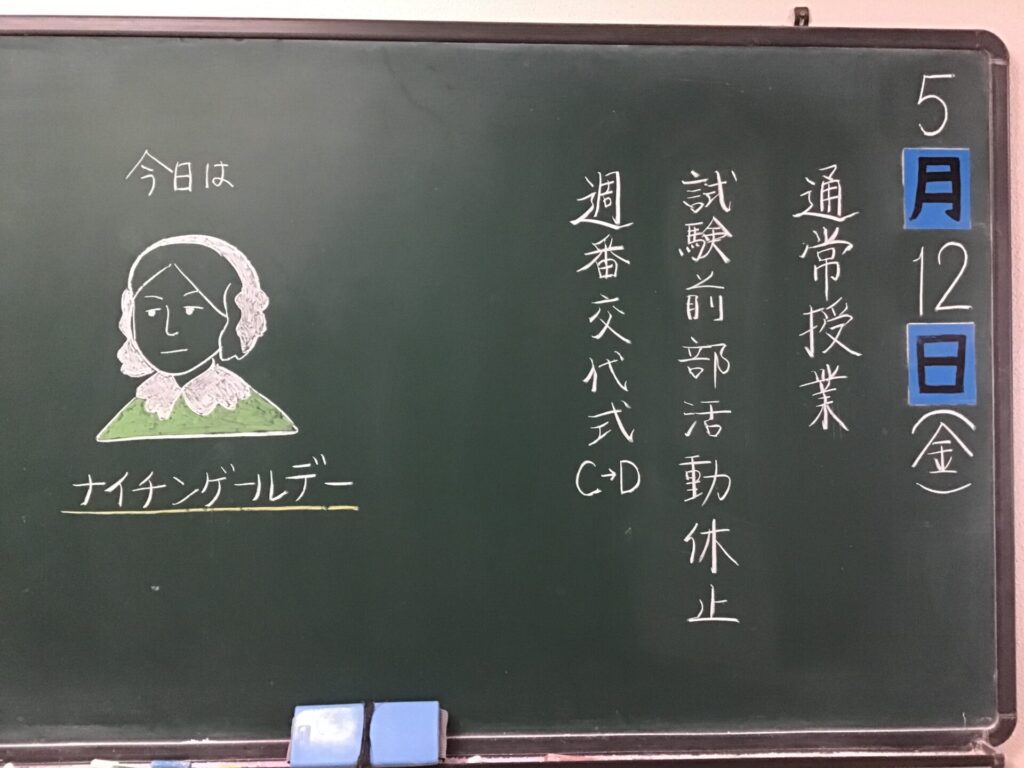 5月12日(金)
通常授業
試験前部活動休止
週番交代式C→D
今日は
ナイチンゲールデー